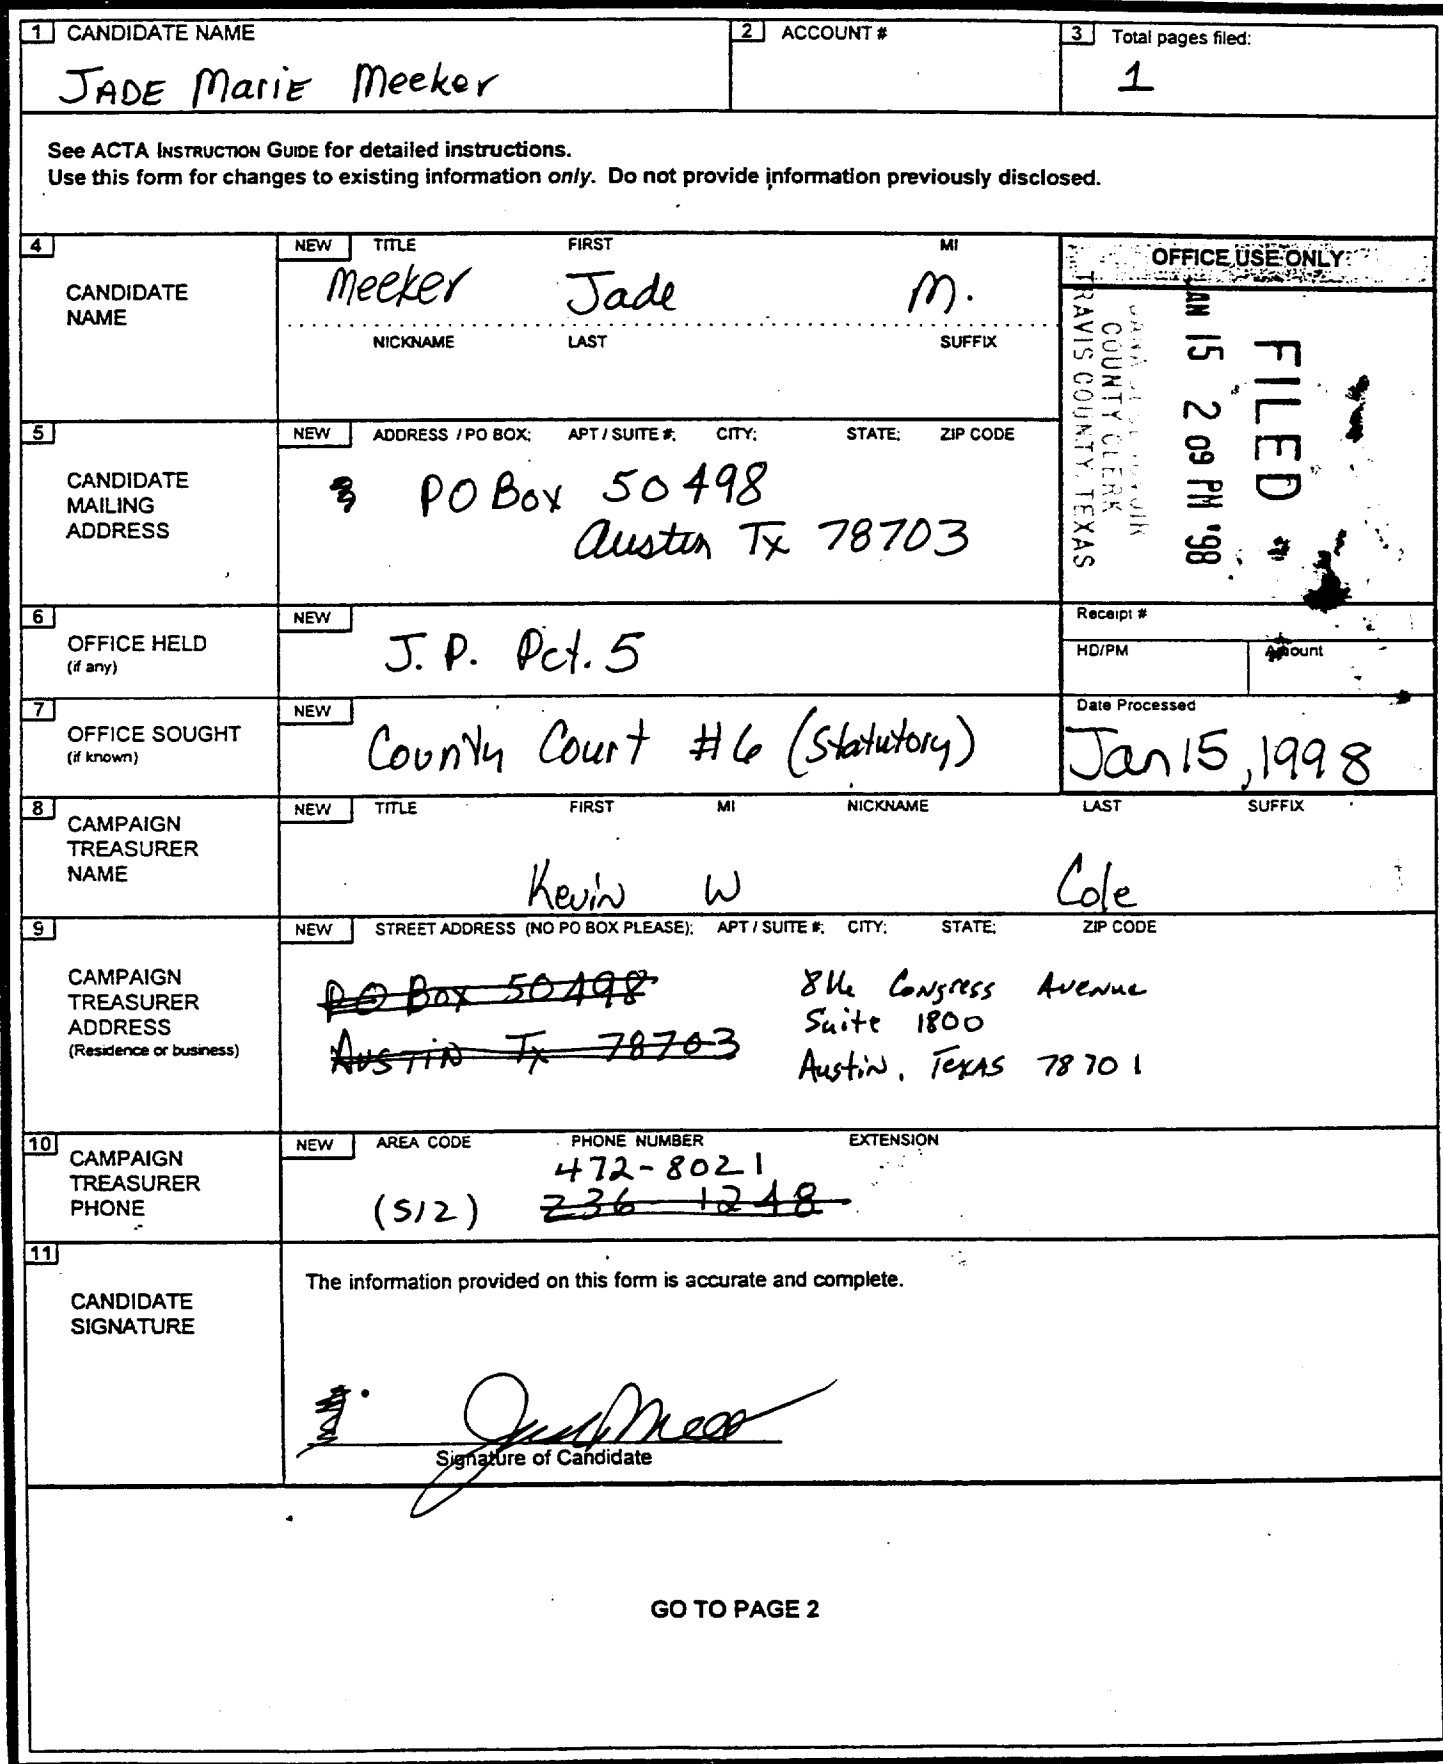 1 CANDIDATE NAME
JADE Marie Meeker
2 ACCOUNT #
3 Total pages filed:
1
See ACTA INSTRUCTION GUIDE for detailed instructions.
Use this form for changes to existing information only. Do not provide information previously disclosed.
4 CANDIDATE NAME
NEW TITLE FIRST MI
Meeker Jade M.
NICKNAME LAST SUFFIX
OFFICE USE ONLY
FILED
JAN 15 2 09 PM '98
COUNTY CLERK
TRAVIS COUNTY, TEXAS
5 CANDIDATE MAILING ADDRESS
NEW ADDRESS / PO BOX; APT / SUITE #; CITY; STATE; ZIP CODE
PO Box 50498
Austin Tx 78703
Receipt #
HD/PM Amount
6 OFFICE HELD
(if any)
NEW
J. P. Pct. 5
7 OFFICE SOUGHT
(if known)
NEW
County Court #6 (Statutory)
Date Processed
Jan 15, 1998
8 CAMPAIGN TREASURER NAME
NEW TITLE FIRST MI NICKNAME LAST SUFFIX
Kevin W Cole
9 CAMPAIGN TREASURER ADDRESS
(Residence or business)
NEW STREET ADDRESS (NO PO BOX PLEASE); APT / SUITE #; CITY; STATE; ZIP CODE
PO Box 50498
Austin Tx 78703
Congress Avenue
Suite 1800
Austin, Texas 78701
10 CAMPAIGN TREASURER PHONE
NEW AREA CODE PHONE NUMBER EXTENSION
472-8021
(512) 236-1248
11 CANDIDATE SIGNATURE
The information provided on this form is accurate and complete.
Signature of Candidate
GO TO PAGE 2